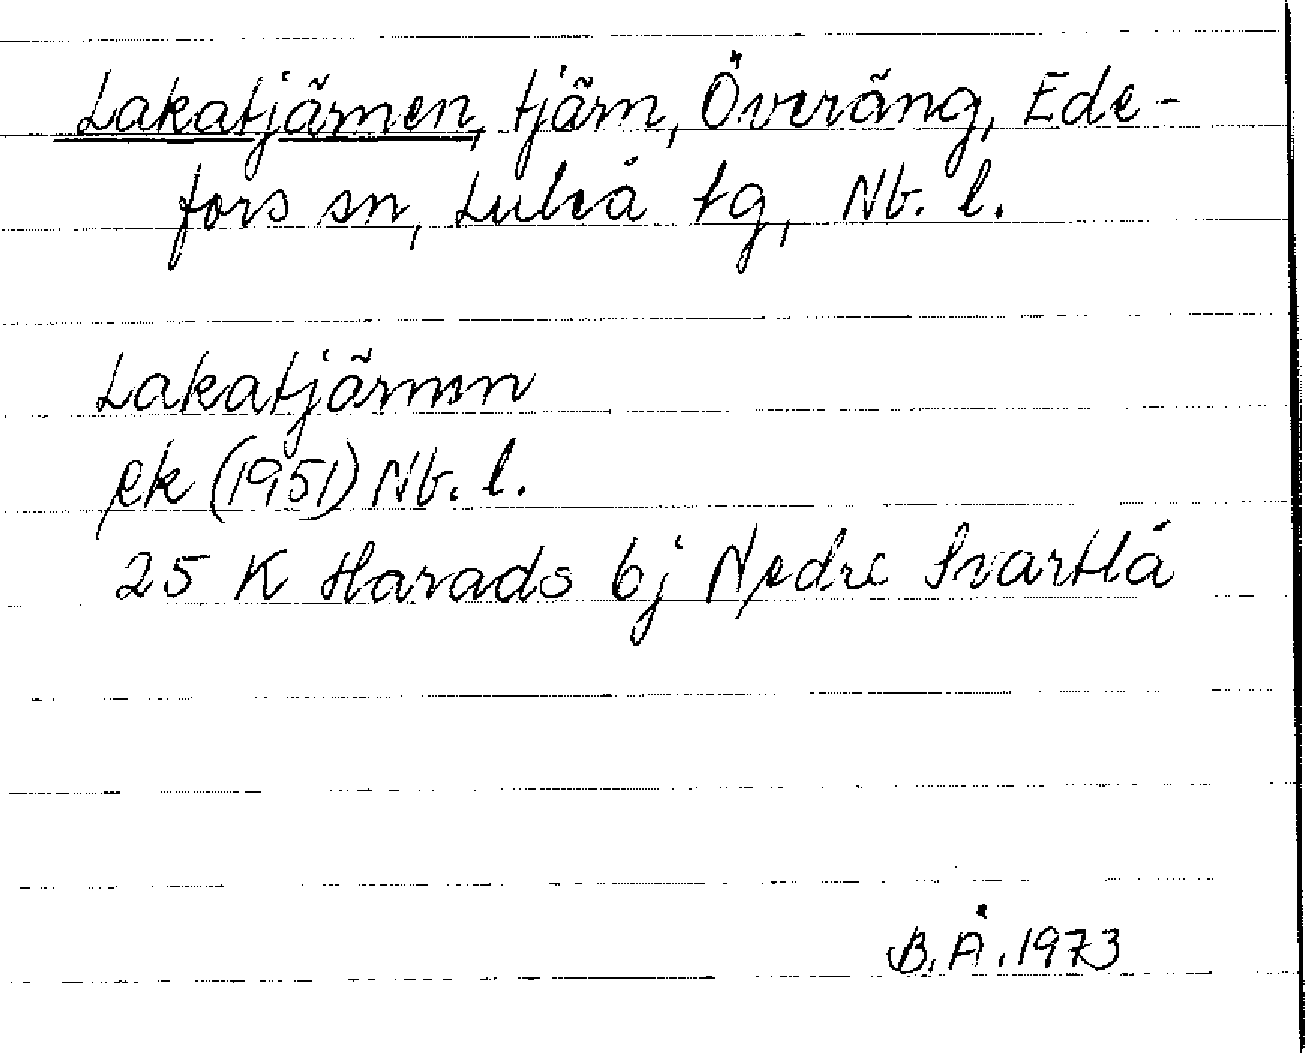 Lakatjärnen, tjärn, Överäng, Ede-
fors sn, Luleå tg, Nb. l.
Lakatjärnen
ek (1951) Nb. l.
25 K Harads 6j Nedre Svartlå
B.Å. 1973